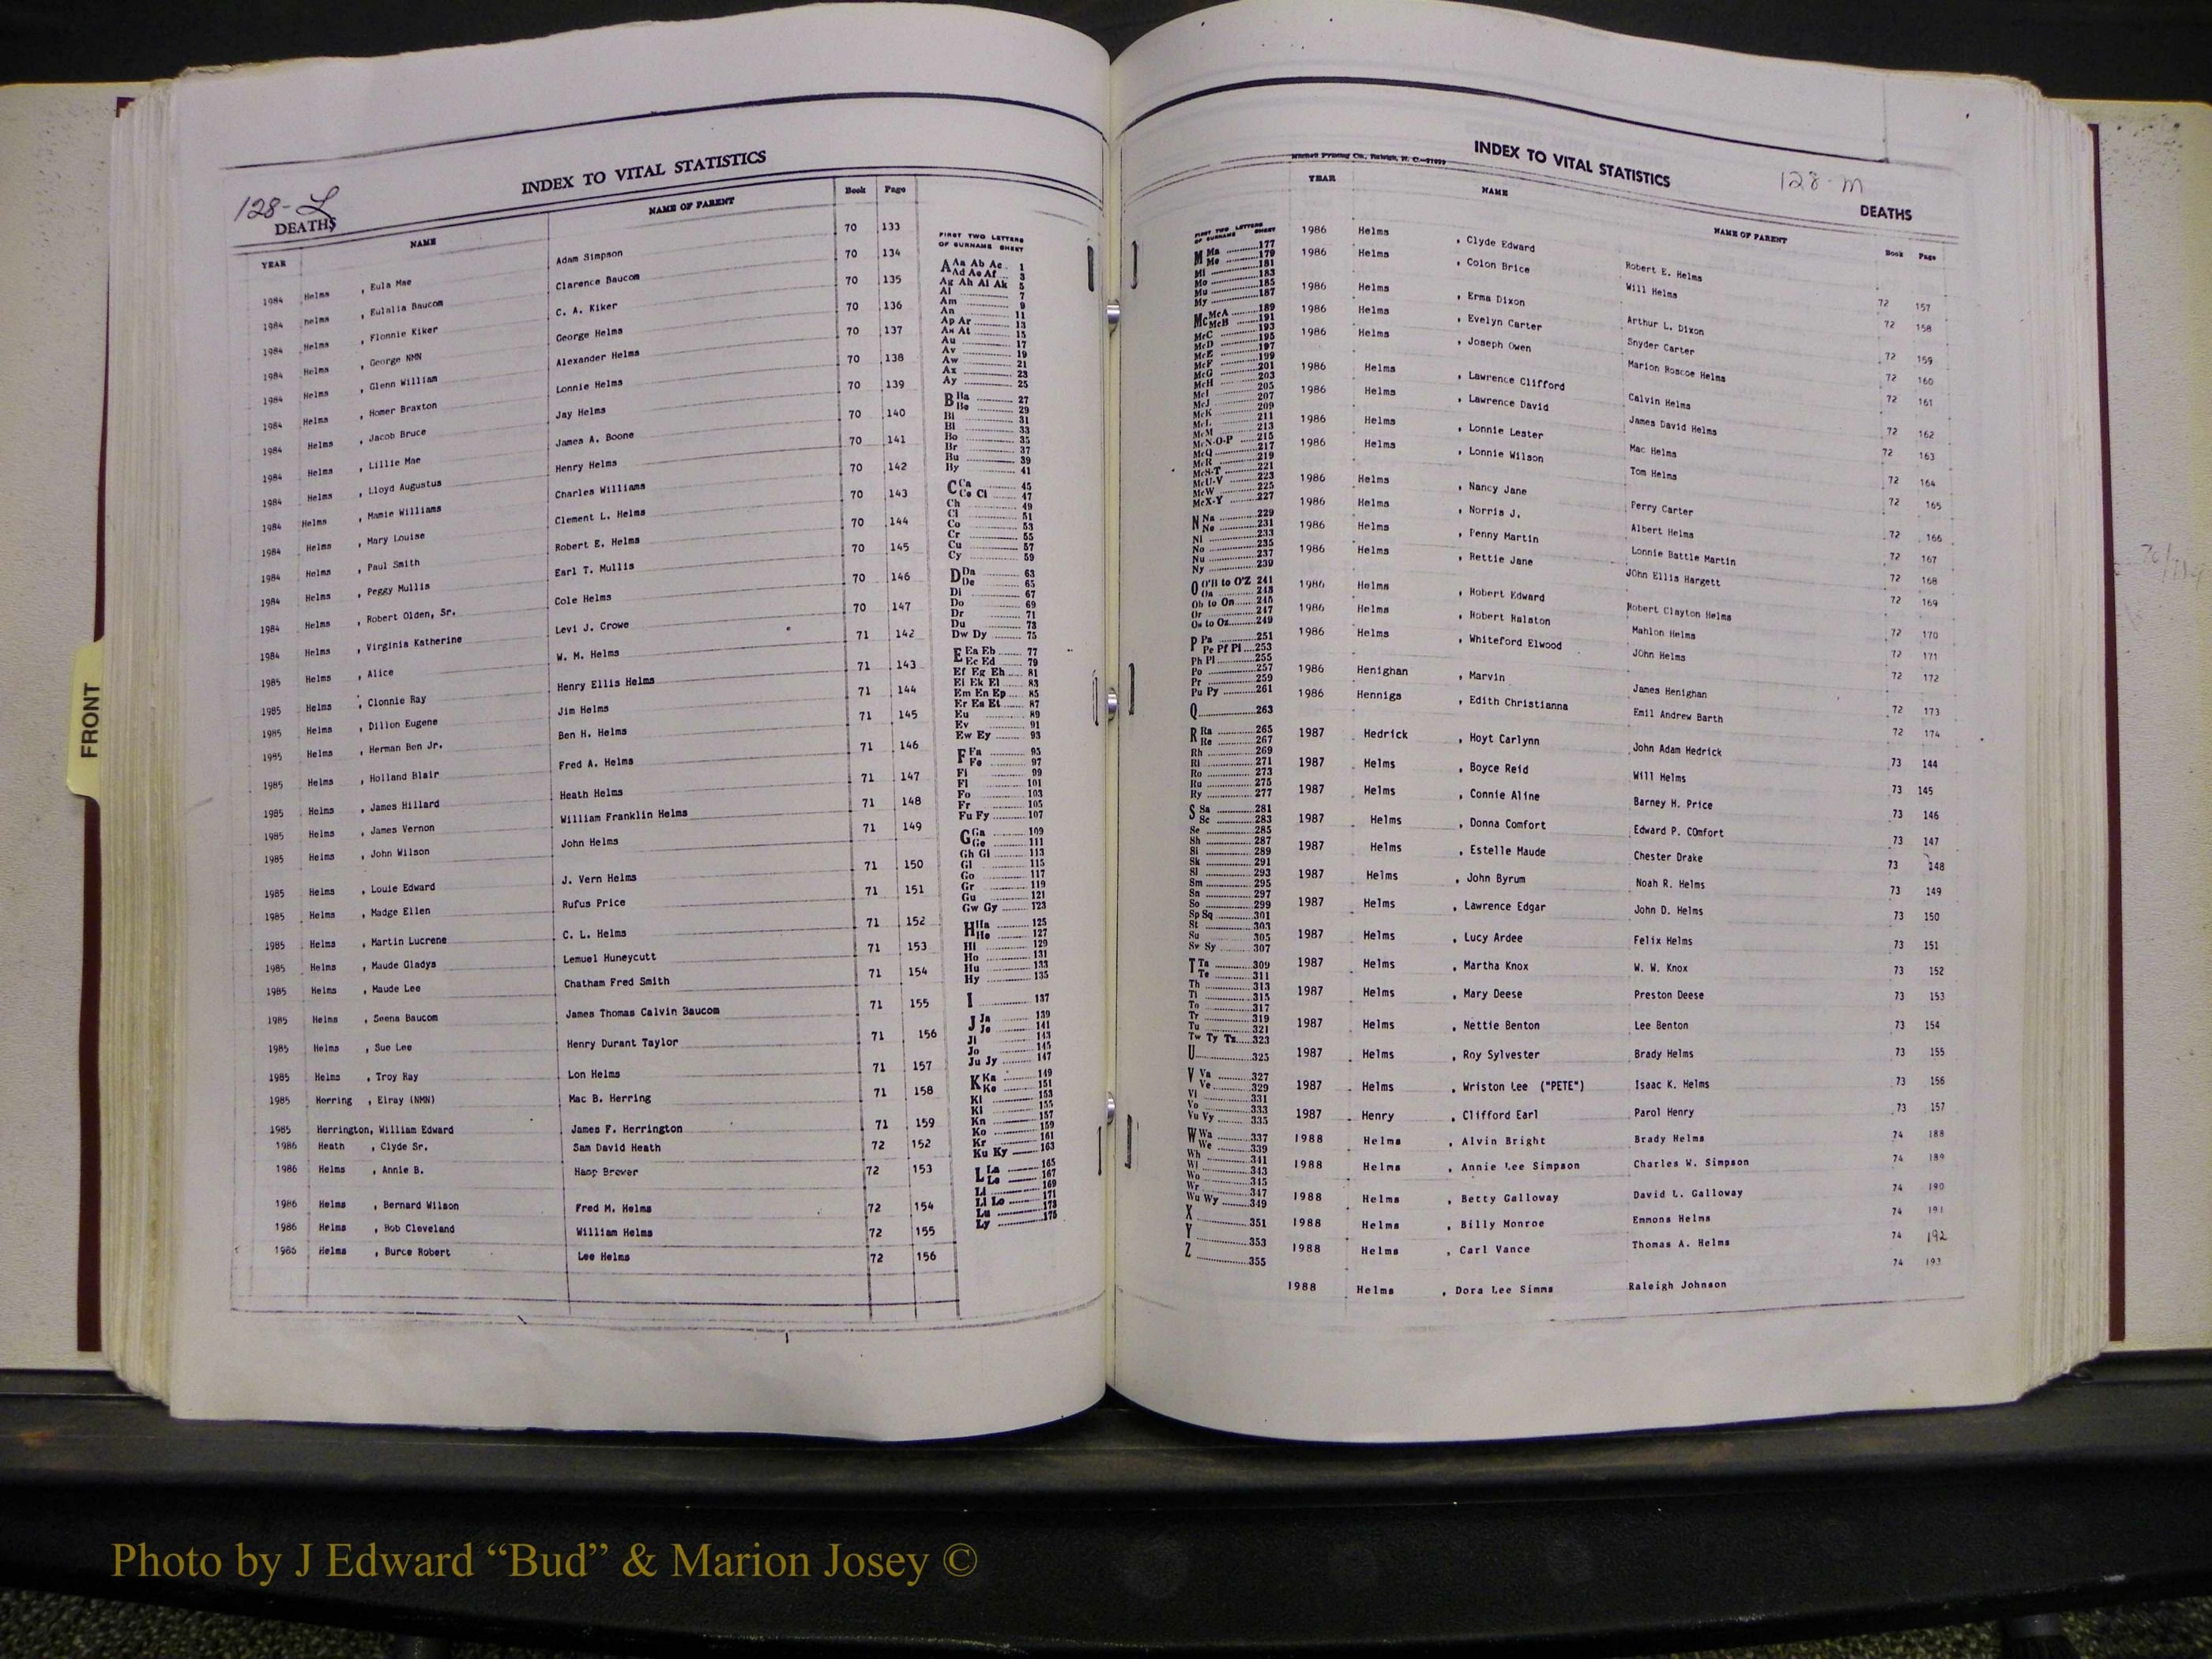 128-L
INDEX TO VITAL STATISTICS
DEATHS
YEAR NAME NAME OF PARENT Book Page
1984 Helms , Eula Mae Adam Simpson 70 133
1984 helms , Eulalia Baucom Clarence Baucom 70 134
1984 Helms , Flonnie Kiker C. A. Kiker 70 135
1984 Helms , George NMN George Helms 70 136
1984 Helms , Glenn William Alexander Helms 70 137
1984 Helms , Homer Braxton Lonnie Helms 70 138
1984 Helms , Jacob Bruce Jay Helms 70 139
1984 Helms , Lillie Mae James A. Boone 70 140
1984 Helms , Lloyd Augustus Henry Helms 70 141
1984 Helms , Mamie Williams Charles Williams 70 142
1984 Helms , Mary Louise Clement L. Helms 70 143
1984 Helms , Paul Smith Robert E. Helms 70 144
1984 Helms , Peggy Mullis Earl T. Mullis 70 145
1984 Helms , Robert Olden, Sr. Cole Helms 70 146
1984 Helms , Virginia Katherine Levi J. Crowe 70 147
1985 Helms , Alice W. M. Helms 71 142
1985 Helms , Clonnie Ray Henry Ellis Helms 71 143
1985 Helms , Dillon Eugene Jim Helms 71 144
1985 Helms , Herman Ben Jr. Ben H. Helms 71 145
1985 Helms , Holland Blair Fred A. Helms 71 146
1985 Helms , James Hillard Heath Helms 71 147
1985 Helms , James Vernon William Franklin Helms 71 148
1985 Helms , John Wilson John Helms 71 149
1985 Helms , Louie Edward J. Vern Helms 71 150
1985 Helms , Madge Ellen Rufus Price 71 151
1985 Helms , Martin Lucrene C. L. Helms 71 152
1985 Helms , Maude Gladys Lemuel Huneycutt 71 153
1985 Helms , Maude Lee Chatham Fred Smith 71 154
1985 Helms , Seena Baucom James Thomas Calvin Baucom 71 155
1985 Helms , Sue Lee Henry Durant Taylor 71 156
1985 Helms , Troy Ray Lon Helms 71 157
1985 Herring , Elray (NMN) Mac B. Herring 71 158
1985 Herrington, William Edward James F. Herrington 71 159
1986 Heath , Clyde Sr. Sam David Heath 72 152
1986 Helms , Annie B. Hamp Brewer 72 153
1986 Helms , Bernard Wilson Fred M. Helms 72 154
1986 Helms , Bob Cleveland William Helms 72 155
1986 Helms , Burce Robert Lee Helms 72 156
FIRST TWO LETTERS
OF SURNAME SHEET
A Aa Ab Ac 1
Ad Ae Af 3
Ag Ah Ai Ak 5
Al 7
Am 9
An 11
Ap Ar 13
As At 15
Au 17
Av 19
Aw 21
Ax 23
Ay 25
B Ba 27
Be 29
Bi 31
Bl 33
Bo 35
Br 37
Bu 39
By 41
C Ca 45
Ce Ci 47
Ch 49
Cl 51
Co 53
Cr 55
Cu 57
Cy 59
D Da 63
De 65
Di 67
Do 69
Dr 71
Du 73
Dw Dy 75
E Ea Eb 77
Ec Ed 79
Ef Eg Eh 81
Ei Ek El 83
Em En Ep 85
Er Es Et 87
Eu 89
Ev 91
Ew Ey 93
F Fa 95
Fe 97
Fi 99
Fl 101
Fo 103
Fr 105
Fu Fy 107
G Ga 109
Ge 111
Gh Gi 113
Gl 115
Go 117
Gr 119
Gu 121
Gw Gy 123
H Ha 125
He 127
Hi 129
Ho 131
Hu 133
Hy 135
I 137
J Ja 139
Je 141
Ji 143
Jo 145
Ju Jy 147
K Ka 149
Ke 151
Ki 153
Kl 155
Kn 157
Ko 159
Kr 161
Ku Ky 163
L La 165
Le 167
Li 169
Ll Lo 171
Lu 173
Ly 175
Mitchell Printing Co., Raleigh, N. C.
INDEX TO VITAL STATISTICS
128-m
DEATHS
YEAR NAME NAME OF PARENT Book Page
FIRST TWO LETTERS
OF SURNAME SHEET
M Ma 177
Me 179
Mi 181
Mo 183
Mu 185
My 187
Mc McA 189
McB 191
McC 193
McD 195
McE 197
McF 199
McG 201
McH 203
McI 205
McJ 207
McK 209
McL 211
McM 213
McN-O-P 215
McQ 217
McR 219
McS-T 221
McU-V 223
McW 225
McX-Y 227
N Na 229
Ne 231
Ni 233
No 235
Nu 237
Ny 239
O O'B to O'Z 241
Oa 243
Ob to On 245
Or 247
Os to Oz 249
P Pa 251
Pe Pf Pi 253
Ph Pl 255
Po 257
Pr 259
Pu Py 261
Q 263
R Ra 265
Re 267
Rh 269
Ri 271
Ro 273
Ru 275
Ry 277
S Sa 281
Sc 283
Se 285
Sh 287
Si 289
Sk 291
Sl 293
Sm 295
Sn 297
So 299
Sp Sq 301
St 303
Su 305
Sw Sy 307
T Ta 309
Te 311
Th 313
Ti 315
To 317
Tr 319
Tu 321
Tw Ty Tz 323
U 325
V Va 327
Ve 329
Vi 331
Vo 333
Vu Vy 335
W Wa 337
We 339
Wh 341
Wi 343
Wo 345
Wr 347
Wu Wy 349
X 351
Y 353
Z 355
1986 Helms , Clyde Edward Robert E. Helms 72 157
1986 Helms , Colon Brice Will Helms 72 158
1986 Helms , Erma Dixon Arthur L. Dixon 72 159
1986 Helms , Evelyn Carter Snyder Carter 72 160
1986 Helms , Joseph Owen Marion Roscoe Helms 72 161
1986 Helms , Lawrence Clifford Calvin Helms 72 162
1986 Helms , Lawrence David James David Helms 72 163
1986 Helms , Lonnie Lester Mac Helms 72 164
1986 Helms , Lonnie Wilson Tom Helms 72 165
1986 Helms , Nancy Jane Perry Carter 72 166
1986 Helms , Norris J. Albert Helms 72 167
1986 Helms , Penny Martin Lonnie Battle Martin 72 168
1986 Helms , Rettie Jane JOhn Ellis Hargett 72 169
1986 Helms , Robert Edward Robert Clayton Helms 72 170
1986 Helms , Robert Halston Mahlon Helms 72 171
1986 Helms , Whiteford Elwood JOhn Helms 72 172
1986 Henighan , Marvin James Henighan 72 173
1986 Hennigs , Edith Christianna Emil Andrew Barth 72 174
1987 Hedrick , Hoyt Carlynn John Adam Hedrick 73 144
1987 Helms , Boyce Reid Will Helms 73 145
1987 Helms , Connie Aline Barney H. Price 73 146
1987 Helms , Donna Comfort Edward P. COmfort 73 147
1987 Helms , Estelle Maude Chester Drake 73 148
1987 Helms , John Byrum Noah R. Helms 73 149
1987 Helms , Lawrence Edgar John D. Helms 73 150
1987 Helms , Lucy Ardee Felix Helms 73 151
1987 Helms , Martha Knox W. W. Knox 73 152
1987 Helms , Mary Deese Preston Deese 73 153
1987 Helms , Nettie Benton Lee Benton 73 154
1987 Helms , Roy Sylvester Brady Helms 73 155
1987 Helms , Wriston Lee ("PETE") Isaac K. Helms 73 156
1987 Henry , Clifford Earl Parol Henry 73 157
1988 Helms , Alvin Bright Brady Helms 74 188
1988 Helms , Annie Lee Simpson Charles W. Simpson 74 189
1988 Helms , Betty Galloway David L. Galloway 74 190
1988 Helms , Billy Monroe Emmons Helms 74 191
1988 Helms , Carl Vance Thomas A. Helms 74 192
1988 Helms , Dora Lee Simms Raleigh Johnson 74 193
FRONT
Photo by J Edward “Bud” & Marion Josey ©